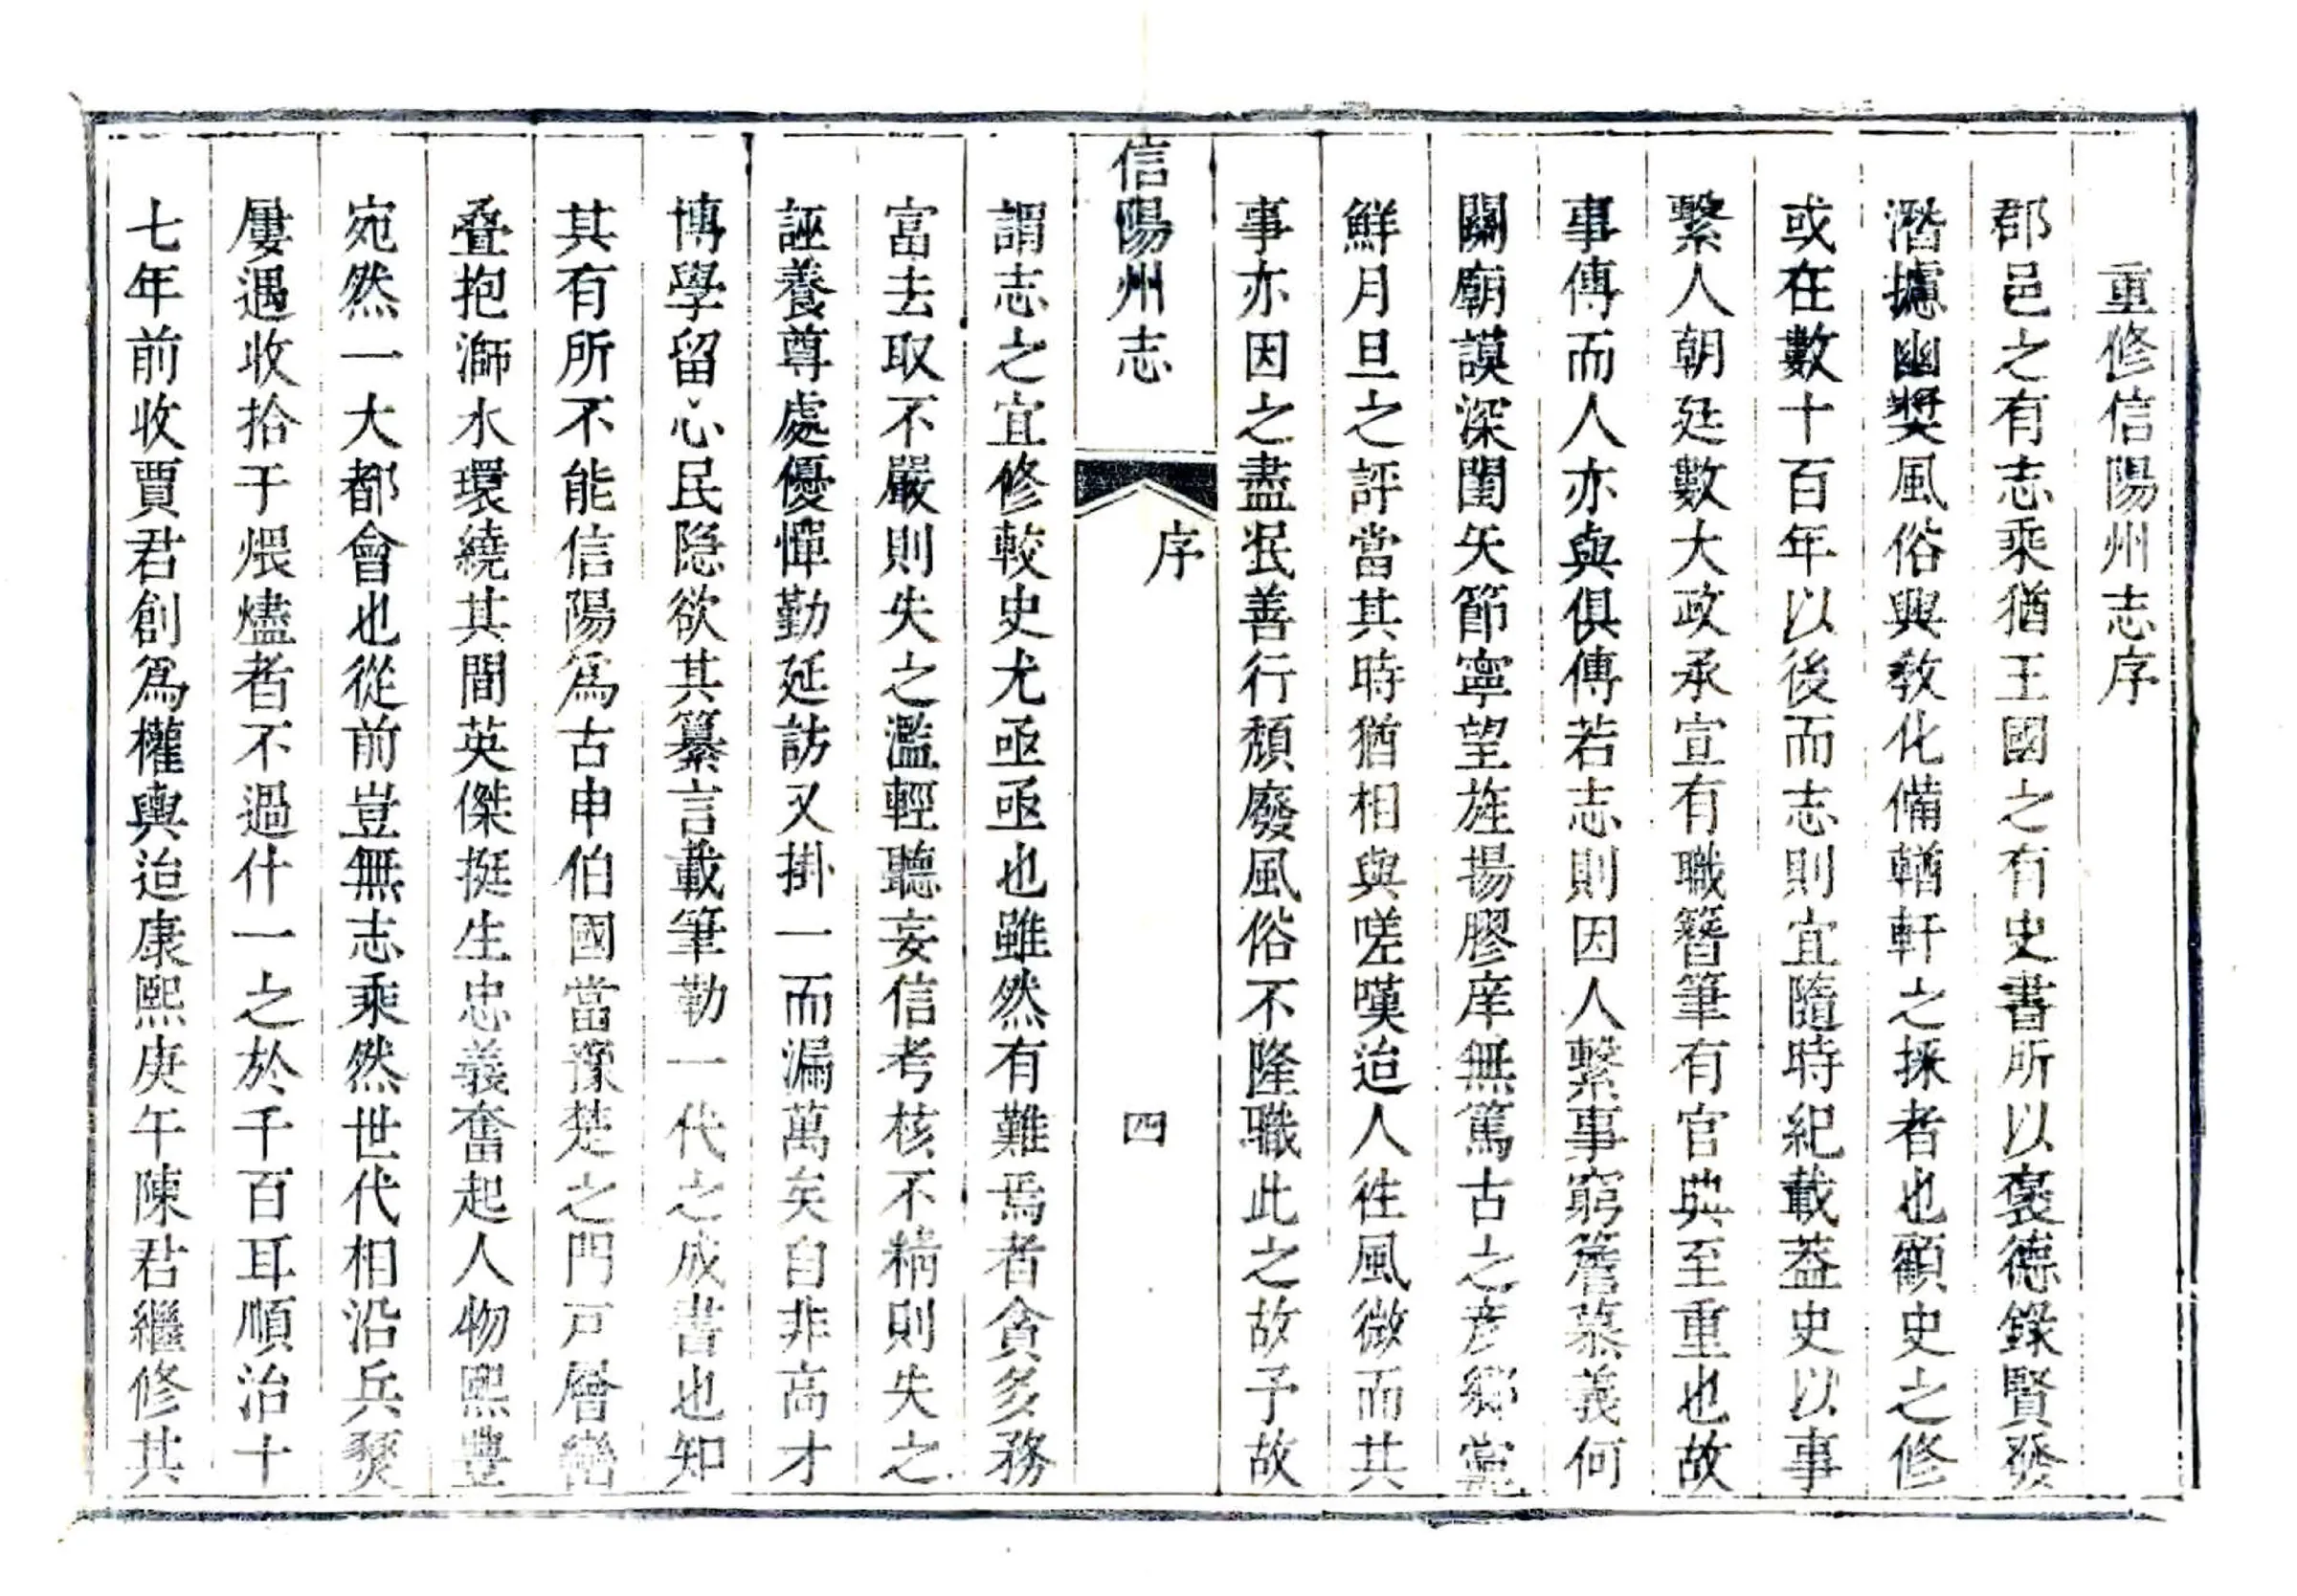 重修信陽州志序
郡邑之有志乘猶王國之有史書所以褒德錄賢發
潛攄幽獎風俗興教化備輶軒之採者也顧史之修
或在數十百年以後而志則宜隨時紀載葢史以事
繫人朝廷數大政承宣有職簪筆有官典至重也故
事傳而人亦與俱傳若志則因人繫事窮簷慕義何
關廟謨深閨矢節寧望旌揚膠庠無篤古之彥鄉黨
鮮月旦之評當其時猶相與嗟嘆迨人徃風微而共
事亦因之盡泯善行頹廢風俗不隆職此之故予故
信陽州志
序
四
謂志之宜修較史尤亟亟也雖然有難焉者貪多務
富去取不嚴則失之濫輕聽妄信考核不精則失之
誣養尊處優憚勤延訪又掛一而漏萬矣自非高才
博學留心民隐欲其纂言載筆勒一代之成書也知
其有所不能信陽爲古申伯國當豫楚之門戸層巒
叠抱溮水環繞其間英傑挺生忠義奮起人物熙豐
宛然一大都會也從前豈無志乘然世代相沿兵燹
屢遇收拾于煨燼者不過什一之於千百耳順治十
七年前收賈君創爲權輿迨康熙庚午陳君繼修其